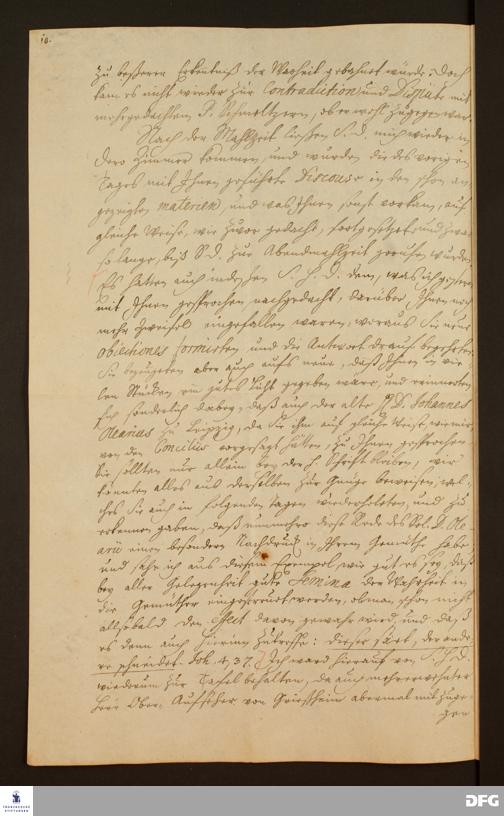 10.
zu beßerem Erkentniß der Warheit gebahnet würde: Doch
kam es nicht wieder zur Contradiction und Dispute mit
mehrgedachtem P. Schmeltzern, ob er wohl zugegen war.
Nach der Mahlzeit ließen S. D. mich wieder in
Dero Zimmer kommen, und wurden die des vorigen
Tages mit Ihnen geführte Discourse in den schon an-
gezeigten materien, und was Ihnen sonst vorkam, auf
gleiche Weise, wie zuvor gedacht, fortgesetzet und zwar
so lange, biß S. D. zur Abendmahlzeit gerufen wurden
Es hatten auch indeßen S. H. D. dem, was ich gestern
mit Ihnen gesprochen nachgedacht, darüber Ihnen noch
mehr Zweifel eingefallen waren, woraus Sie neue
obiectiones formirten und die Antwort drauf begehrten.
Sie bezeugeten aber auch aufs neue, daß Ihnen in vie-
len Stücken ein gutes Licht gegeben wäre, und erinnerten
sich sonderlich dabey, daß auch der alte D. Johannes
Olearius zu Leipzig, da Sie ihm auf gleiche Weise, wie mir
von den Conciliis vorgesagt hätten, zu Ihnen gesprochen:
Sie sollten nur allein bey der H. Schrift bleiben, wir
könnten alles aus derselben zur Gnüge beweisen, wel-
ches Sie auch in folgenden Tagen wiederholeten, und zu
erkennen gaben, daß nunmehro diese Rede des Sel. D. Ole-
arii einen besondern Nachdruck in Ihrem Gemüthe habe
und sahe ich aus diesem Exempel, wie gut es sey, daß
bey aller Gelegenheit gute Semina der Wahrheit in
die Gemüther eingestreuet werden, ob man schon nicht
allsobald den effect davon gewahr wird, und daß
es denn auch hierinn zutreffe: dieser säet, der ande-
re schneidet. Joh. 4, 37. Ich ward hierauf von S. H. D.
wiederum zur Tafel behalten, da auch mehrerwehnter
Herr Ober-Aufseher von Griesheim abermal mit zuge-
gen
FRANCKESCHE STIFTUNGEN
DFG